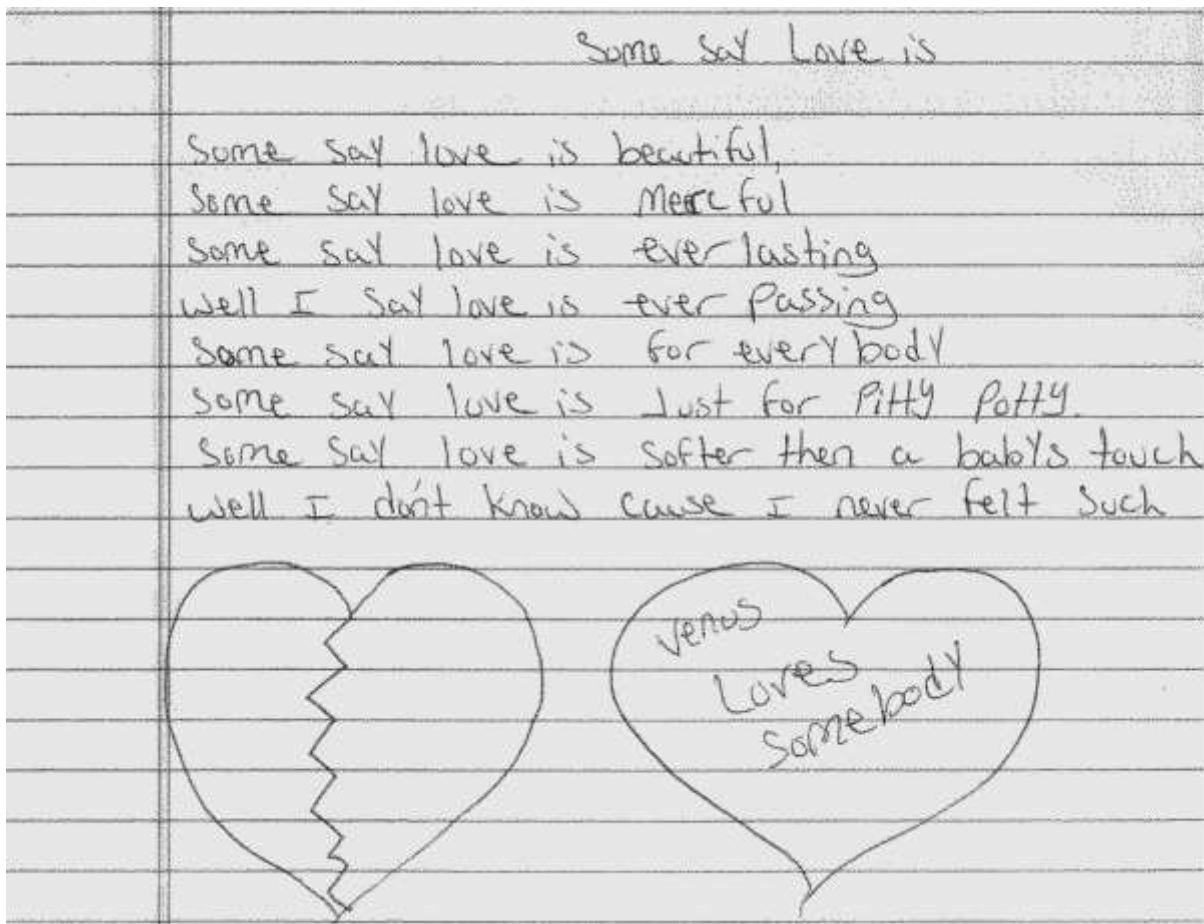 Some say Love is
Some say love is beautiful,
Some say love is mercful
Some say love is ever lasting
well I say love is ever passing
Some say love is for every body
Some say love is Just for Pitty Potty.
Some say love is softer then a baby's touch
well I don't know cause I never felt such
Venus
Loves
Somebody